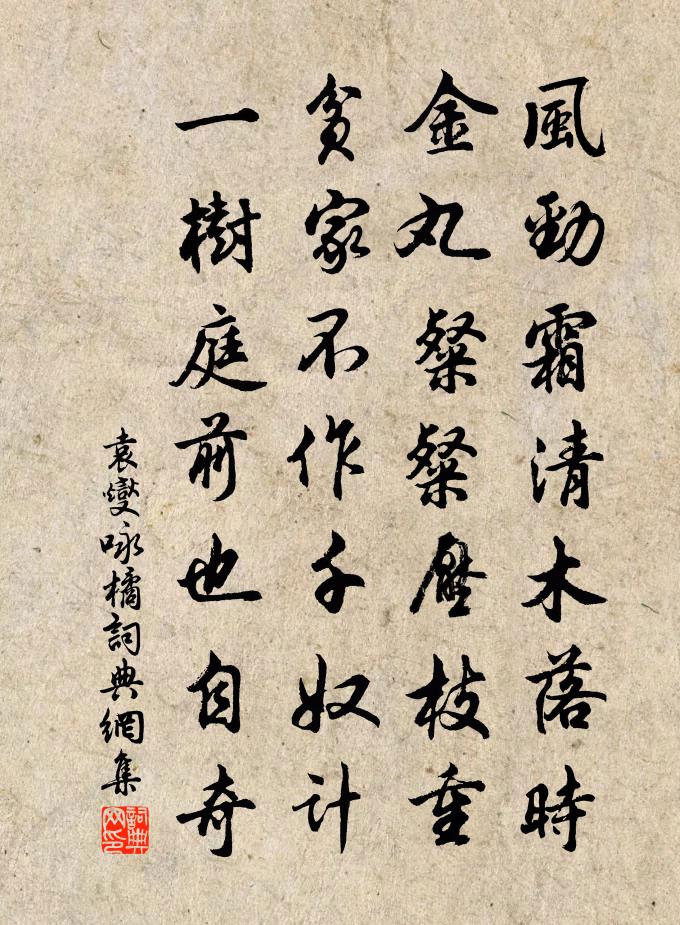 風勁霜清木落時
金丸粲粲壓枝重
貧家不作千奴計
一樹庭前也自奇
袁燮咏橘詞典網集
詞典網印